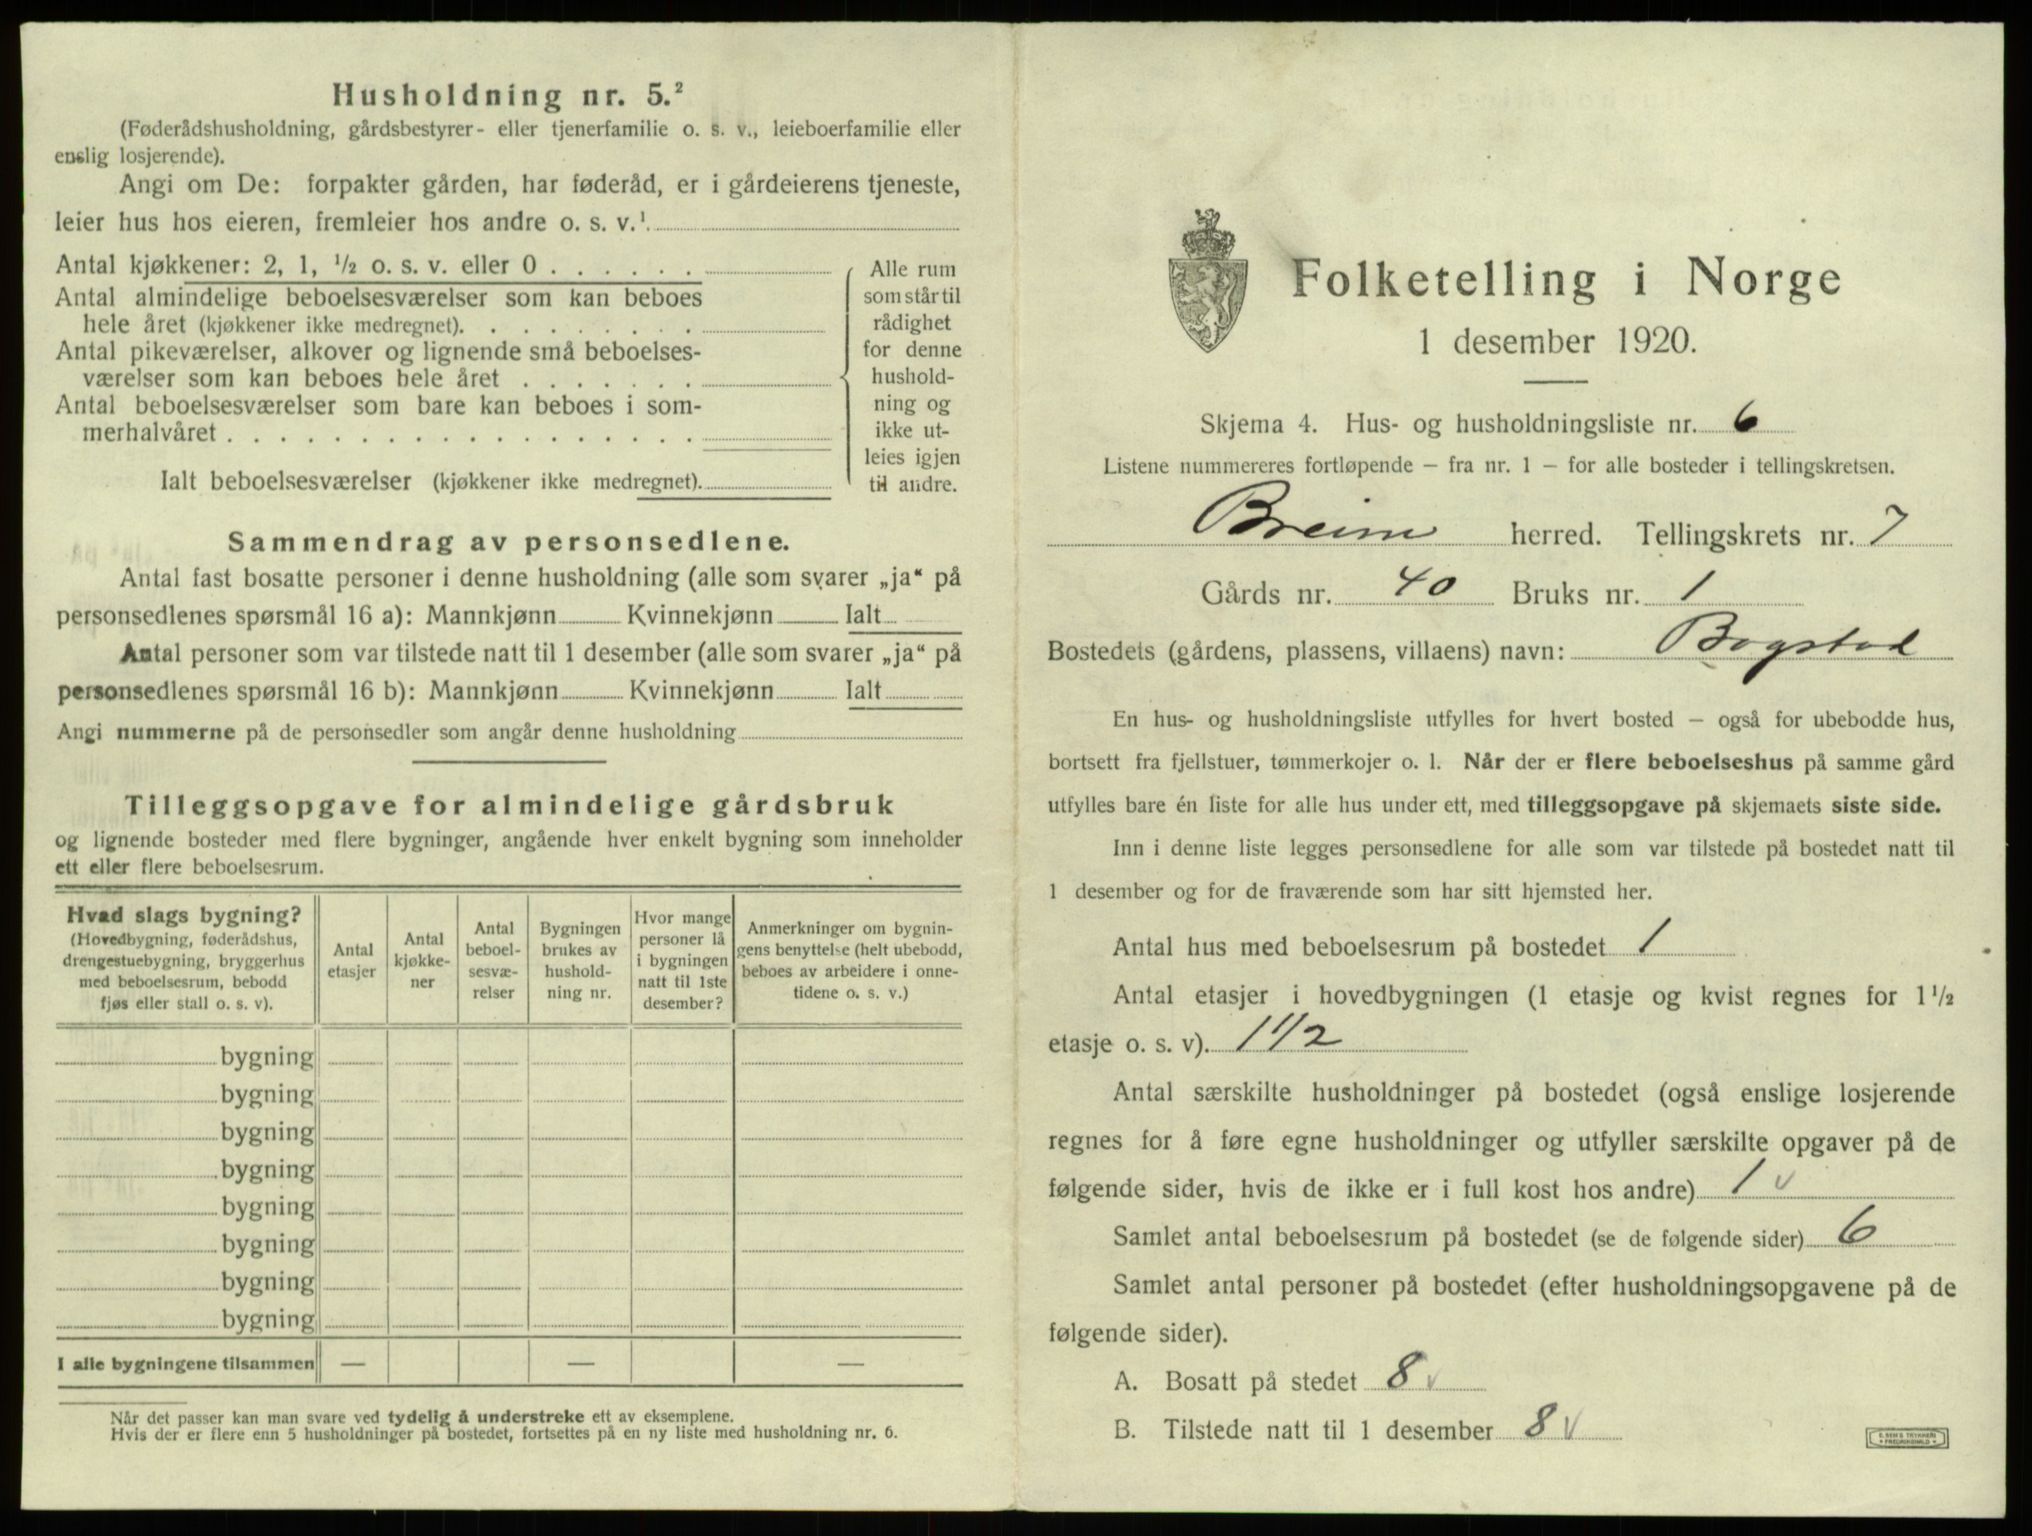 Husholdning nr. 5.²
(Føderådshusholdning, gårdsbestyrer- eller tjenerfamilie o. s. v., leieboerfamilie eller
enslig losjerende).
Angi om De: forpakter gården, har føderåd, er i gårdeierens tjeneste,
leier hus hos eieren, fremleier hos andre o. s. v.¹
Antal kjøkkener: 2, 1, ½ o. s. v. eller 0 . . . . . .
Antal almindelige beboelsesværelser som kan beboes
hele året (kjøkkener ikke medregnet). . . . . . . . .
Antal pikeværelser, alkover og lignende små beboelses-
værelser som kan beboes hele året . . . . . . .
Antal beboelsesværelser som bare kan beboes i som-
merhalvåret . . . . . . . . . . . . . . . . . .
Ialt beboelsesværelser (kjøkkener ikke medregnet).
Alle rum
som står til
rådighet
for denne
hushold-
ning og
ikke ut-
leies igjen
til andre.
Sammendrag av personsedlene.
Antal fast bosatte personer i denne husholdning (alle som svarer „ja“ på
personsedlenes spørsmål 16 a): Mannkjønn Kvinnekjønn Ialt
Antal personer som var tilstede natt til 1 desember (alle som svarer „ja“ på
personsedlenes spørsmål 16 b): Mannkjønn Kvinnekjønn Ialt
Angi nummerne på de personsedler som angår denne husholdning
Tilleggsopgave for almindelige gårdsbruk
og lignende bosteder med flere bygninger, angående hver enkelt bygning som inneholder
ett eller flere beboelsesrum.
Hvad slags bygning?
(Hovedbygning, føderådshus,
drengestuebygning, bryggerhus
med beboelsesrum, bebodd
fjøs eller stall o. s. v).
Antal
etasjer
Antal
kjøkke-
ner
Antal
beboel-
sesvæ-
relser
Bygningen
brukes av
hushold-
ning nr.
Hvor mange
personer lå
i bygningen
natt til 1ste
desember?
Anmerkninger om bygnin-
gens benyttelse (helt ubebodd,
beboes av arbeidere i onne-
tidene o. s. v.)
bygning
bygning
bygning
bygning
bygning
bygning
bygning
bygning
I alle bygningene tilsammen — — —
Når det passer kan man svare ved tydelig å understreke ett av eksemplene.
Hvis der er flere enn 5 husholdninger på bostedet, fortsettes på en ny liste med husholdning nr. 6.
Folketelling i Norge
1 desember 1920.
Skjema 4. Hus- og husholdningsliste nr. 6
Listene nummereres fortløpende – fra nr. 1 – for alle bosteder i tellingskretsen.
Breim herred. Tellingskrets nr. 7
Gårds nr. 40 Bruks nr. 1
Bostedets (gårdens, plassens, villaens) navn: Bogstad
En hus- og husholdningsliste utfylles for hvert bosted – også for ubebodde hus,
bortsett fra fjellstuer, tømmerkojer o. l. Når der er flere beboelseshus på samme gård
utfylles bare én liste for alle hus under ett, med tilleggsopgave på skjemaets siste side.
Inn i denne liste legges personsedlene for alle som var tilstede på bostedet natt til
1 desember og for de fraværende som har sitt hjemsted her.
Antal hus med beboelsesrum på bostedet 1
Antal etasjer i hovedbygningen (1 etasje og kvist regnes for 1½
etasje o. s. v). 1 1/2
Antal særskilte husholdninger på bostedet (også enslige losjerende
regnes for å føre egne husholdninger og utfyller særskilte opgaver på de
følgende sider, hvis de ikke er i full kost hos andre) 1 v
Samlet antal beboelsesrum på bostedet (se de følgende sider) 6
Samlet antal personer på bostedet (efter husholdningsopgavene på de
følgende sider).
A. Bosatt på stedet 8 v
B. Tilstede natt til 1 desember 8 v